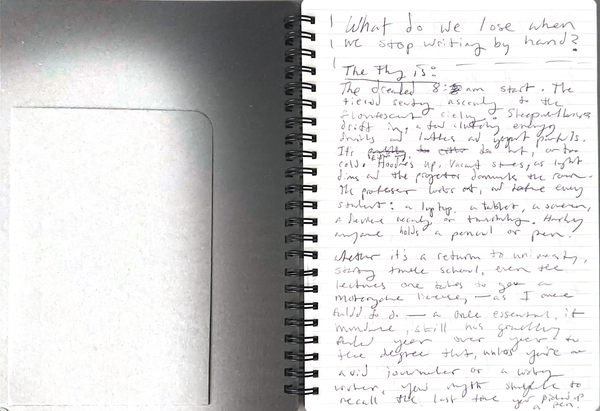 What do we lose when
we stop writing by hand?
The thing is:
The dreaded 8: am start. The
tiered seating ascending to the
flourescent ceiling. Sleepwalkers
drift in, a few clutching energy
drinks and lattes and yogurt
It's too hot, or too
cold. Hoodies up. Vacant stares, as light
dims and the projector dominates the room.
The professor looks out, and before every
student: a laptop, a tablet, a screen,
a device or Hardly
anyone holds a pencil or pen.
Whether it's a return to university,
starting trade school, even the
lectures one takes to get a
motorcycle licence, — as I once
had to do — a once essential, if
mundane, skill has gradually
faded year over year to
the degree that, unless you're an
avid journaler or a
writer, you might struggle to
recall the last time you picked up
a pen.